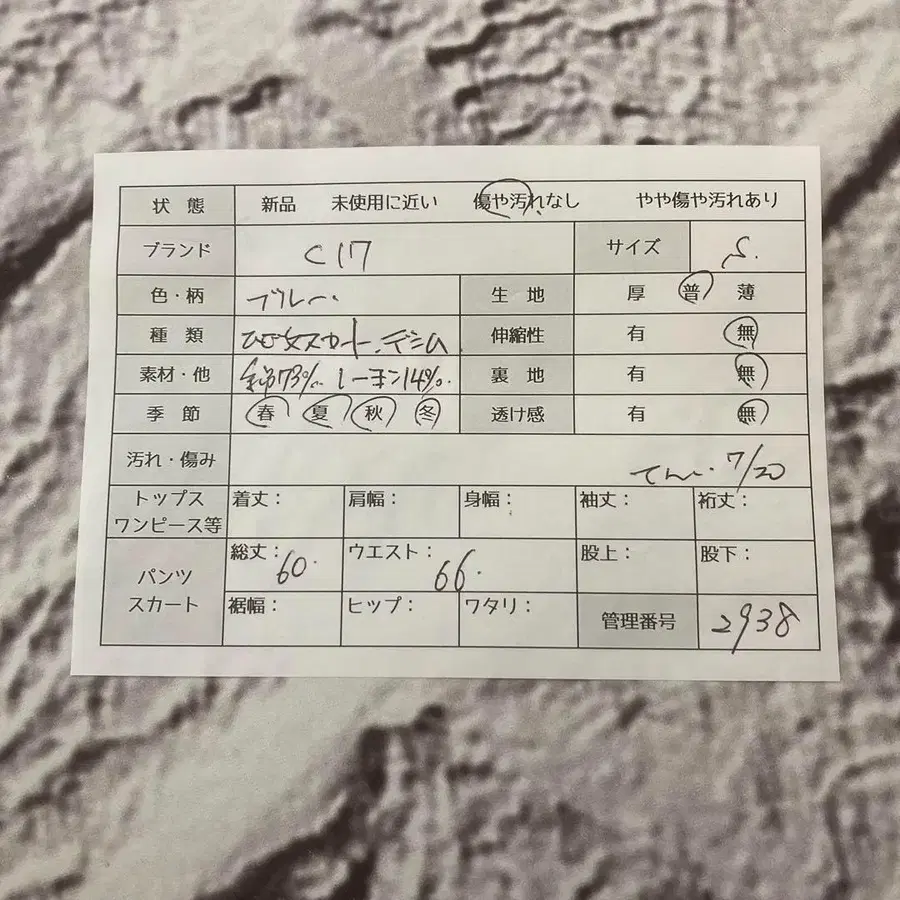 状態 新品 未使用に近い 傷や汚れなし やや傷や汚れあり
ブランド C17 サイズ S.
色・柄 ブルー. 生地 厚 普 薄
種類 ひざ丈スカート.デニム 伸縮性 有 無
素材・他 綿73% レーヨン14%. 裏地 有 無
季節 春 夏 秋 冬 透け感 有 無
汚れ・傷み 7/20
トップス
ワンピース等 着丈: 肩幅: 身幅: 袖丈: 裄丈:
パンツ
スカート 総丈: 60. ウエスト: 66. 股上: 股下:
裾幅: ヒップ: ワタリ: 管理番号 2938